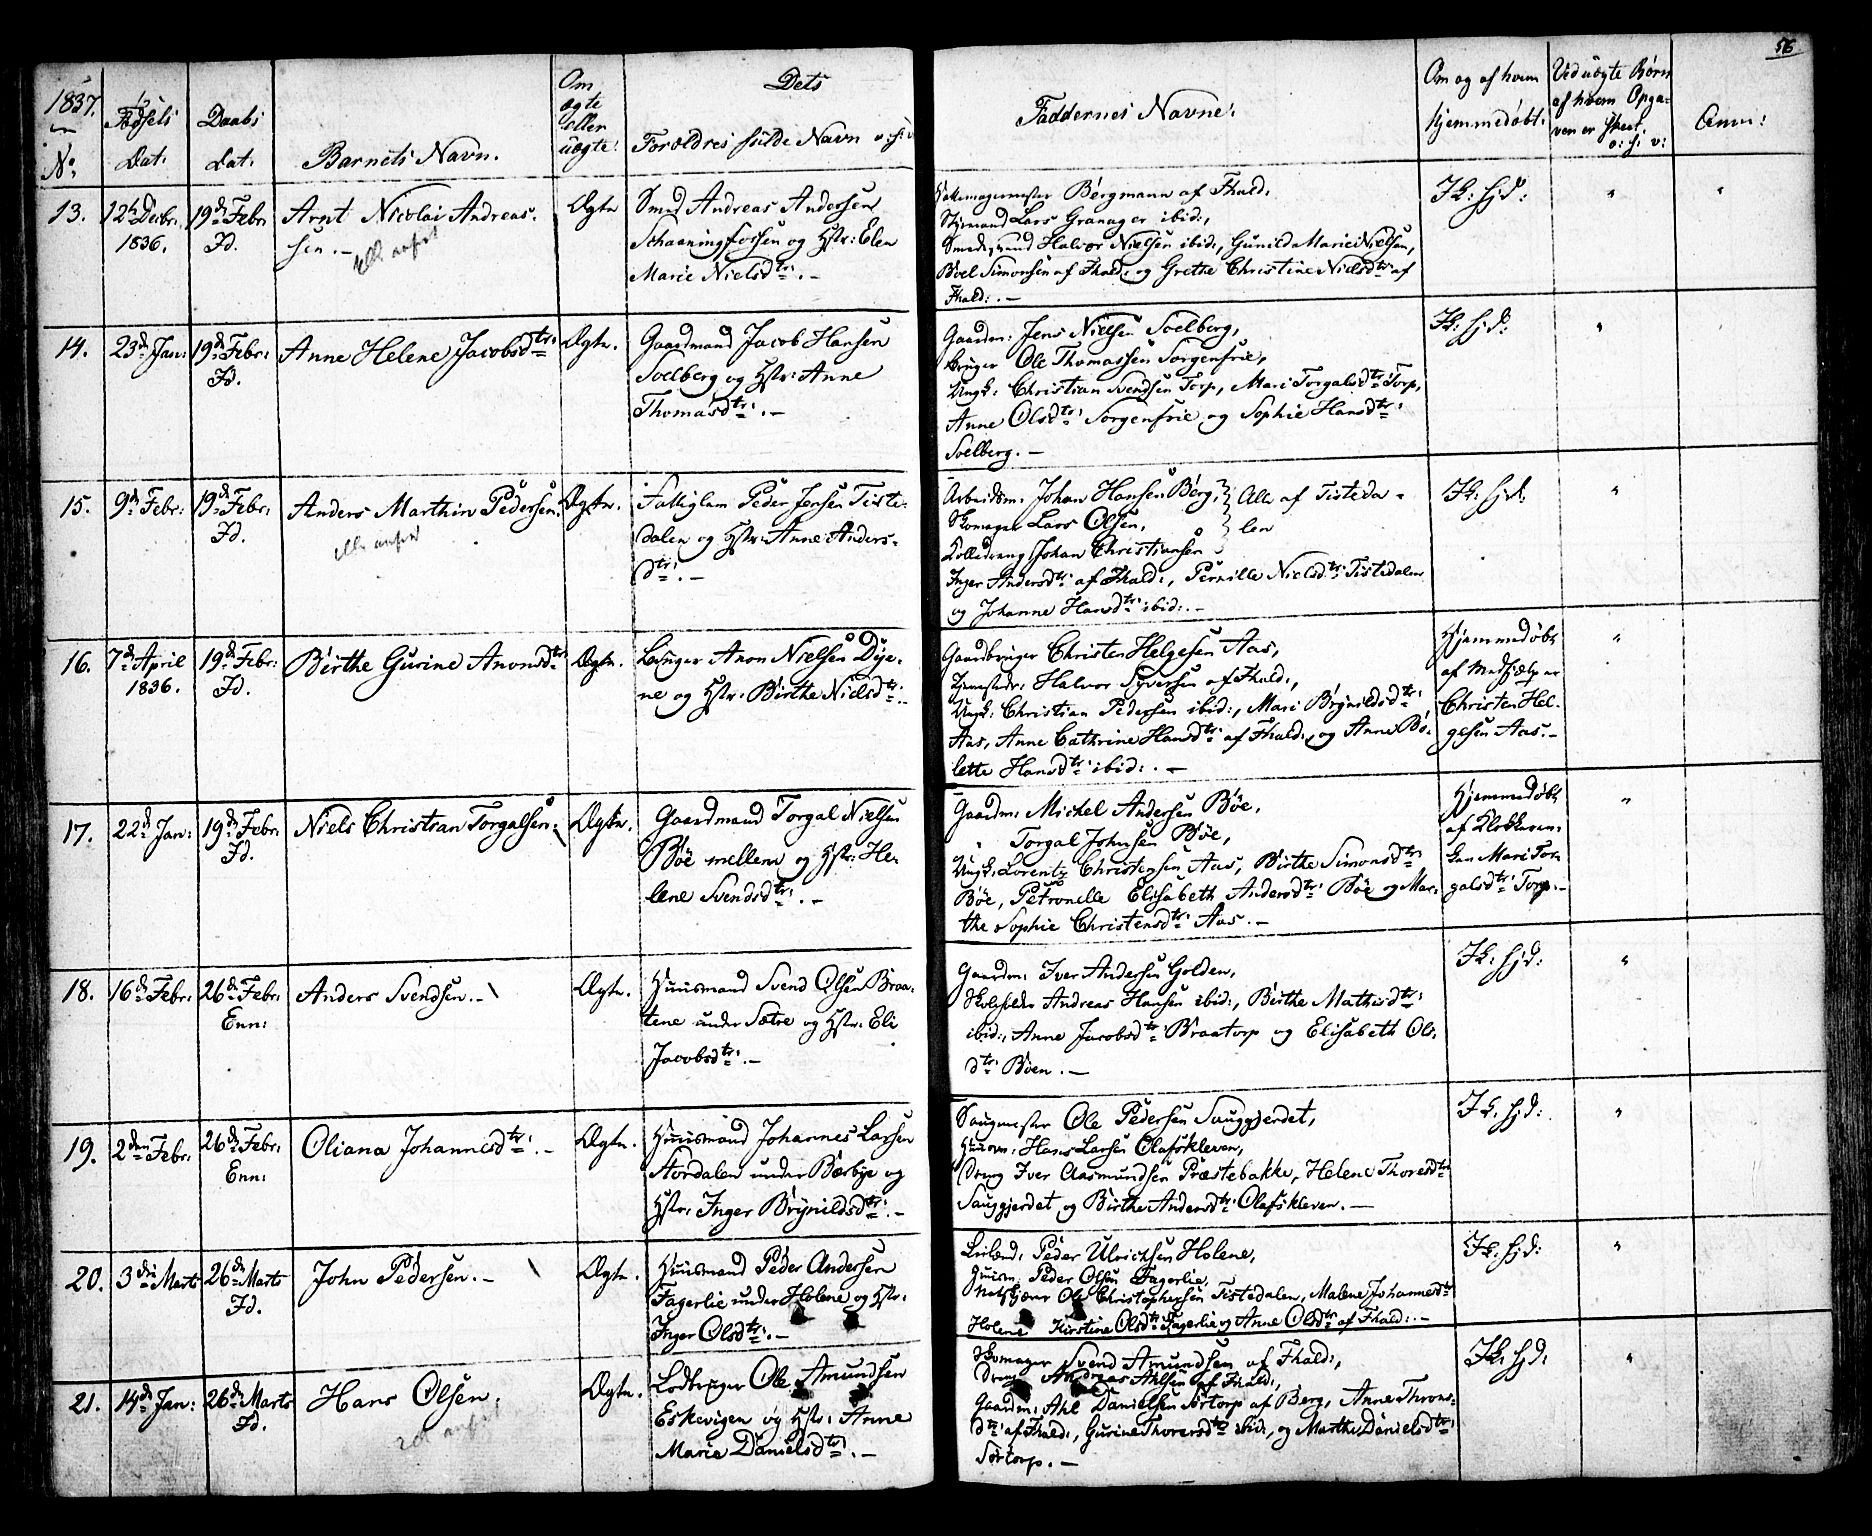 56
1837.
No
Fødsels
Dat.
Daabs
Dat.
Barnets Navn.
Om
ægte
eller
uægte:
Dets
Forældres fulde Navn
Faddernes Navne:
Om og af hvem
hjemmedøbt:
Ved uægte Børn
af hvem Opga-
ven er skeet.
Anm:
13.
12te Decbr.
1836.
19de Febr:
Id.
Arnt Nicolai Andreas-
sen. —
Ægte
Smed Andreas Andersen
Schaaningfossen og Hstr: Elen
Marie Nielsdtr. —
Bergmann af Fhald:
Lars Granager ibid:,
Halvor Nielsen ibid:, Gunild Marie Nielsen,
Boel Simonsen af Fhald: og Grethe Christine Nielsdtr: af
Fhald: . —
Ik: hjd:
"
"
14.
23de Jan:
19de Febr:
Id.
Anne Helene Jacobsdtr:
Ægte.
Gaardmand Jacob Hansen
Soelberg og Hstr: Anne
Thomasdtr: . —
Gaardm: Jens Nielsen Soelberg,
Bruger Ole Thomassen Sorgenfrie,
Ungk: Christian Svendsen Torp, Mari Torgalsdtr: Torp,
Anne Olsdtr: Sorgenfrie og Sophie Hansdtr:
Soelberg. —
Ik: hjd:
"
15.
9de Febr:
19de Febr:
Id.
Anders Marthin Pedersen.
Ægte.
Fattiglem Peder Jensen Tiste-
dalen og Hstr: Anne Anders-
dtr: . —
Arbeidsm: Johan Hansen Berg, } Alle af Tisteda-
Skomager Lars Olsen, } len
Johan Christiansen
Inger Andersdtr: af Fhald:, Pernille Nielsdtr: Tistedalen
og Johanne Hansdtr: ibid: . —
Ik: hjd:
"
16.
7de April
1836.
19de Febr:
Id.
Birthe Gurine Anonsdtr:
Ægte.
Bruger Anon Nielsen Dye-
ne og Hstr: Birthe Nielsdtr: . —
Gaardbruger Christen Helgesen Aas,
Halvor Syversen af Fhald:,
Ungk: Christian Pedersen ibid:, Mari Brynildsdtr:
Aas, Anne Cathrine Hansdtr: af Fhald:, og Anne Bo-
lette Hansdtr: ibid: . —
Hjemmedøbt
af Medhjelper
Christen Hel-
gesen Aas. —
"
17.
22de Jan:
19de Febr:
Id.
Niels Christian Torgalsen.
Ægte.
Gaardmand Torgal Nielsen
Böe mellem og Hstr: He-
lene Svendsdtr: . —
Gaardm: Michel Andersen Böe,
" Torgal Johnsen Böe,
Ungk: Lorentz Christensen Aas, Birthe Simonsdtr:
Böe, Petronelle Elisabeth Andersdtr: Böe og Mar-
the Sophie Christensdtr: Aas. —
Hjemmedøbt
af
Mari Tor-
galsdtr: Torp. —
"
18.
16de Febr:
26de Febr:
Enn:
Anders Svendsen. —
Ægte.
Huusmand Svend Olsen Braa-
tene under Sætre og Hstr: Eli
Jacobsdtr: . —
Gaardm: Iver Andersen Golden,
Skoleholder Andreas Hansen ibid:, Birthe Mathisdtr:
ibid:, Anne Jacobsdtr: Braatorp og Elisabeth Ols-
dtr: Böen. —
Ik: hjd:
"
19.
2den Febr:
26de Febr:
Enn:
Oliana Johannesdtr: . —
Ægte.
Huusmand Johannes Larsen
Stordalen under Bærbye og
Hstr: Inger Brynildsdtr: . —
Saugmester Ole Pedersen Sauggjerdet,
Huusm: Hans Larsen Olafskleven,
Dreng Iver Aasmundsen Præstebakke, Helene Thoresdtr:
Sauggjerdet og Birthe Andersdtr: Olafskleven. —
Ik: hjd:
"
20.
3die Marts
26de Marts
Id.
John Pedersen. —
Ægte.
Huusmand Peder Andersen
Fagerlie under Holene og Hstr:
Inger Olsdtr: . —
Leilænd: Peder Ulrichsen Holene,
Huusm: Peder Olsen Fagerlie,
Ole Christophersen Tistedalen, Malene Johannesdtr:
Holene Kirstine Olsdtr: Fagerlie og Anne Olsdtr: af Fhald: . —
Ik: hjd:
"
21.
14de Jan:
26de Marts
Id.
Hans Olsen.
Ægte.
Lodbruger Ole Amundsen
Eskevigen og Hstr: Anne
Marie Danielsdtr: . —
Skomager Svend Amundsen af Fhald:,
Dreng Andreas Ahlsen af Fhald:,
Gaardm: Ahl Danielsen Sörtorp af Berg, Anne Throns-
dtr: af Fhald:, Gurine Thoresdtr: ibid:, og Marthe Danielsdtr:
Sörtorp. —
Ik: hjd:
"